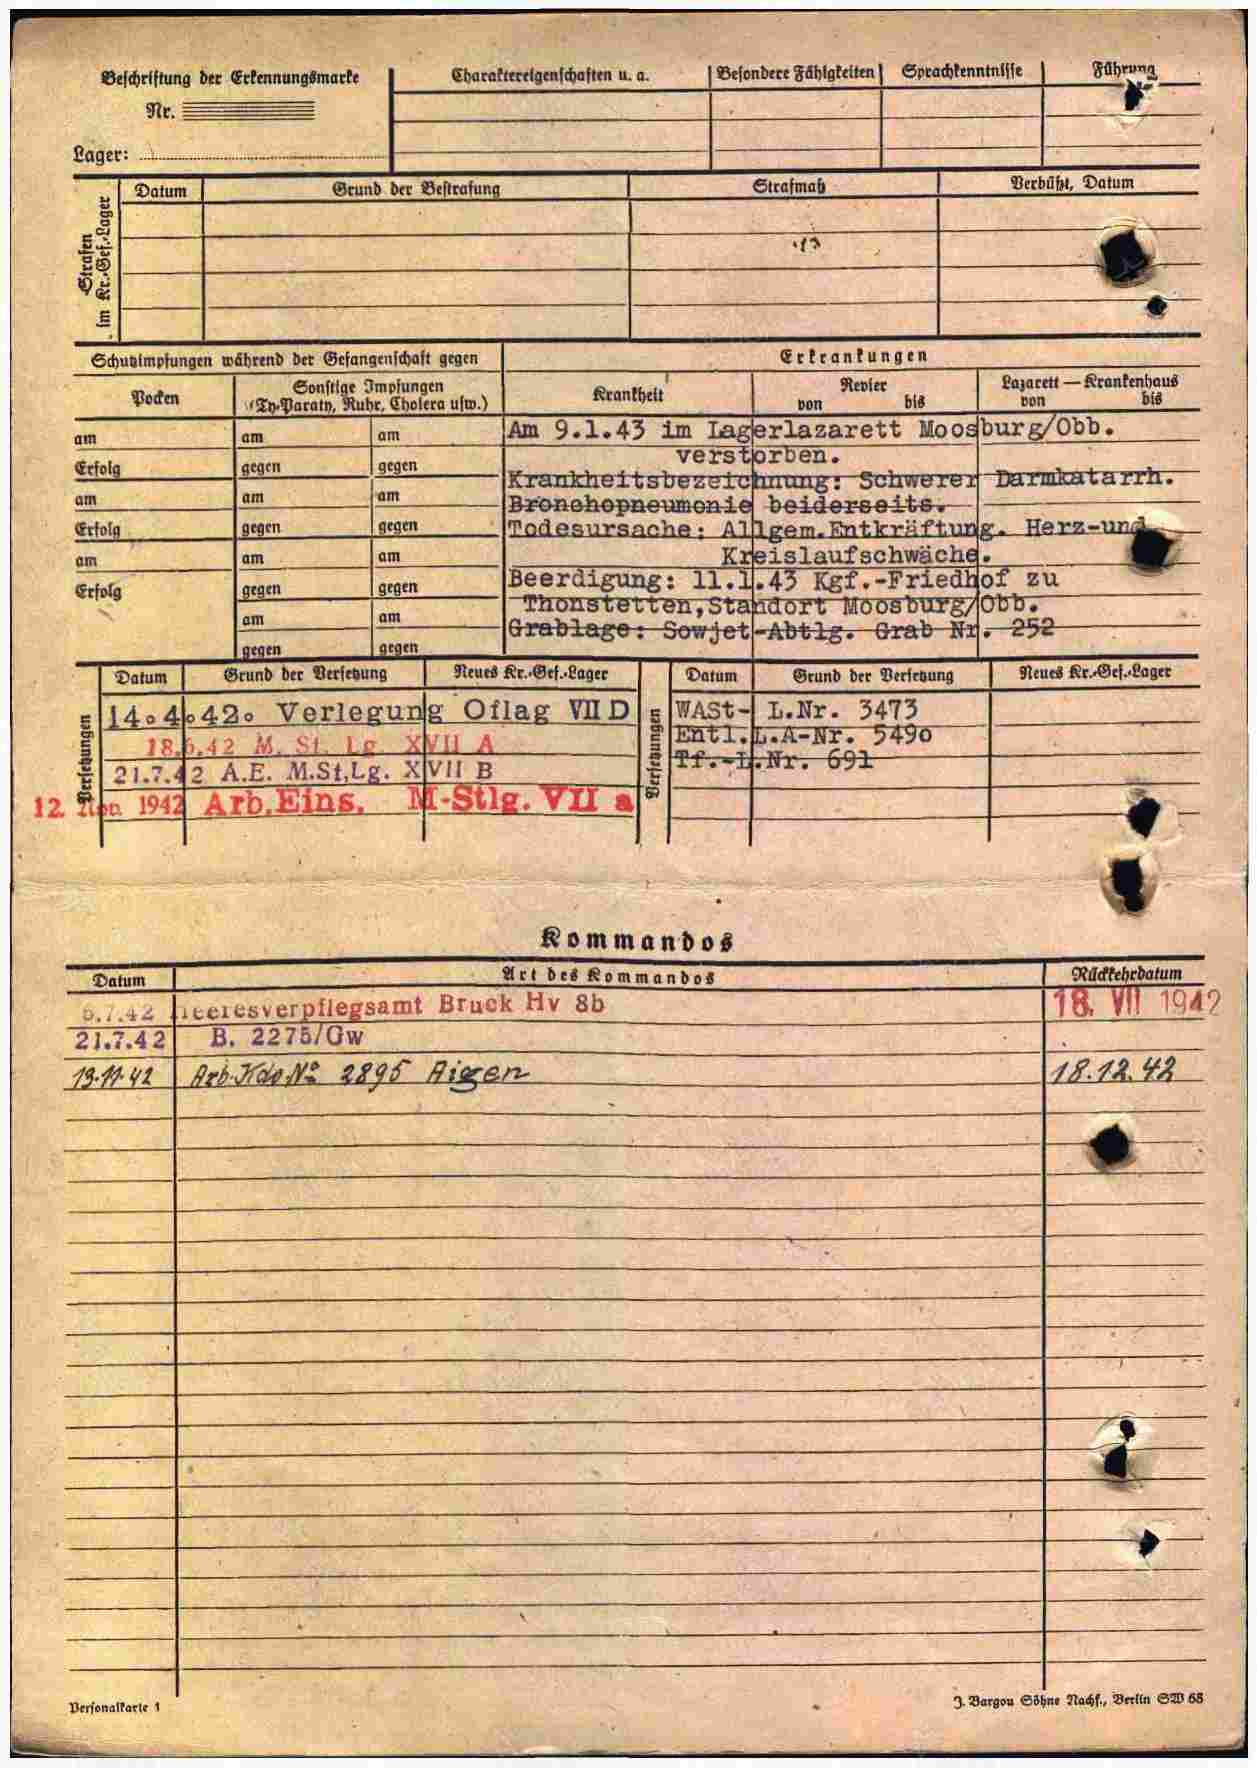 Beschriftung der Erkennungsmarke
Nr.
Lager:
Charaktereigenschaften u. a.
Besondere Fähigkeiten
Sprachkenntnisse
Führung
Strafen
im Kr.-Gef.-Lager
Datum
Grund der Bestrafung
Strafmaß
Verbüßt, Datum
Schutzimpfungen während der Gefangenschaft gegen
Erkrankungen
Pocken
Sonstige Impfungen
(Ty-Paraty, Ruhr, Cholera usw.)
Krankheit
Revier
von bis
Lazarett — Krankenhaus
von bis
am am am
Erfolg gegen gegen
am am am
Erfolg gegen gegen
am am am
Erfolg gegen gegen
am am
gegen gegen
Am 9.1.43 im Lagerlazarett Moosburg/Obb.
verstorben.
Krankheitsbezeichnung: Schwerer Darmkatarrh.
Bronchopneumonie beiderseits.
Todesursache: Allgem.Entkräftung. Herz-und
Kreislaufschwäche.
Beerdigung: 11.1.43 Kgf.-Friedhof zu
Thonstetten,Standort Moosburg/Obb.
Grablage: Sowjet-Abtlg. Grab Nr. 252
Versetzungen
Datum Grund der Versetzung Neues Kr.-Gef.-Lager
14.4.42. Verlegung Oflag VII D
18.6.42 M. St. Lg. XVII A
21.7.42 A.E. M.St,Lg. XVII B
12. Nov. 1942 Arb.Eins. M-Stlg. VII a
Versetzungen
Datum Grund der Versetzung Neues Kr.-Gef.-Lager
WASt- L.Nr. 3473
Entl.L.A-Nr. 5490
Tf.-L.Nr. 691
Kommandos
Datum Art des Kommandos Rückkehrdatum
6.7.42 Heeresverpflegsamt Bruck Hv 8b 18. VII 1942
21.7.42 B. 2275/Gw
13.11.42 Arb.Kdo.No 2895 Aigen 18.12.42
Personalkarte 1
J. Bargou Söhne Nachf., Berlin SW 68